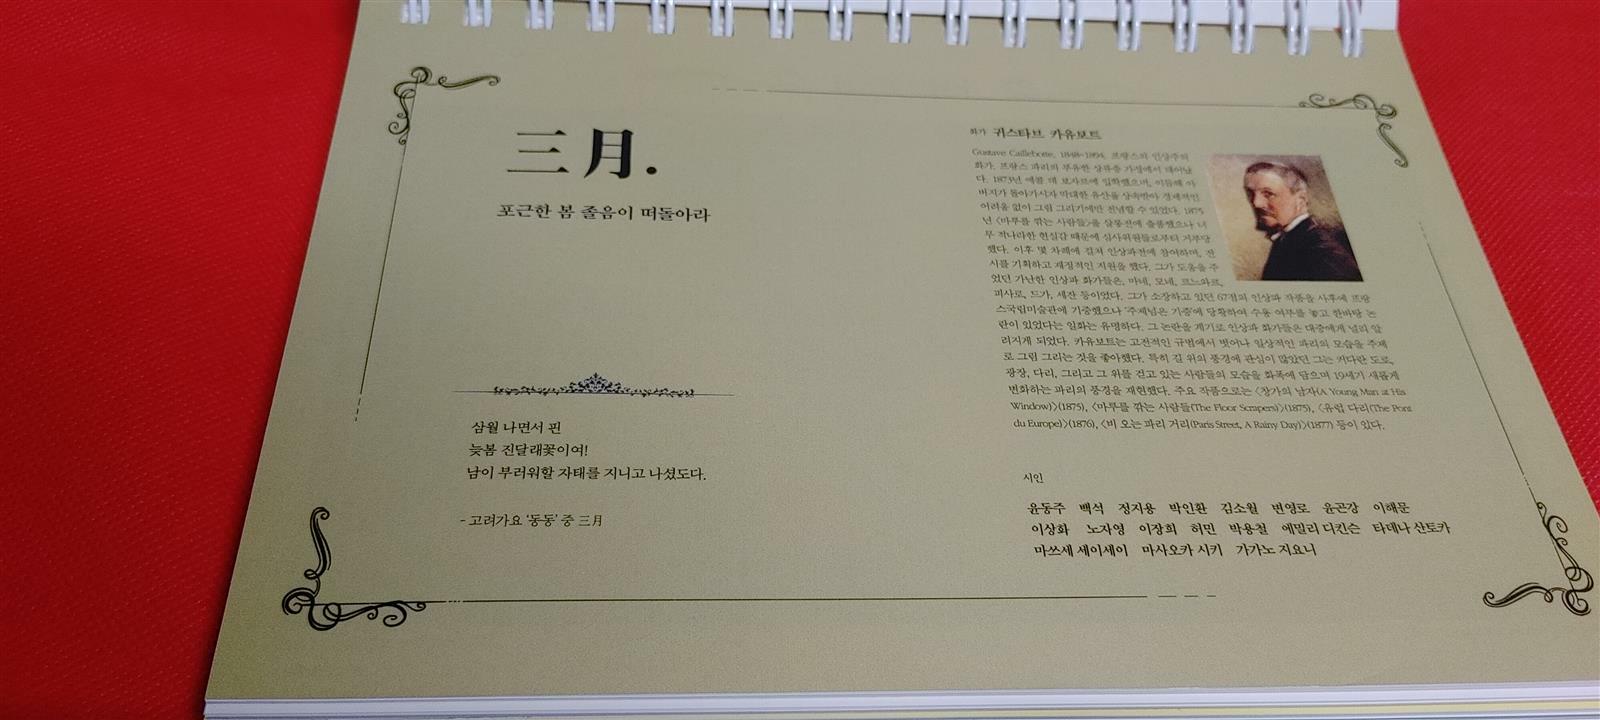 三月.
포근한 봄 졸음이 떠돌아라
삼월 나면서 핀
늦봄 진달래꽃이여!
남이 부러워할 자태를 지니고 나셨도다.
- 고려가요 '동동' 중 三月
화가 귀스타브 카유보트
Gustave Caillebotte, 1848~1894. 프랑스의 인상주의
화가. 프랑스 파리의 부유한 상류층 가정에서 태어났
다. 1873년 에콜 데 보자르에 입학했으며, 이듬해 아
버지가 돌아가시자 막대한 유산을 상속받아 경제적인
어려움 없이 그림 그리기에만 전념할 수 있었다. 1875
년 〈마루를 깎는 사람들〉을 살롱전에 출품했으나 너
무 적나라한 현실감 때문에 심사위원들로부터 거부당
했다. 이후 몇 차례에 걸쳐 인상파전에 참여하며, 전
시를 기획하고 재정적인 지원을 했다. 그가 도움을 주
었던 가난한 인상파 화가들은, 마네, 모네, 르느와르,
피사로, 드가, 세잔 등이었다. 그가 소장하고 있던 67점의 인상파 작품을 사후에 프랑
스국립미술관에 기증했으나 '주제넘은 기증'에 당황하여 수용 여부를 놓고 한바탕 논
란이 있었다는 일화는 유명하다. 그 논란을 계기로 인상파 화가들은 대중에게 널리 알
려지게 되었다. 카유보트는 고전적인 규범에서 벗어나 일상적인 파리의 모습을 주제
로 그림 그리는 것을 좋아했다. 특히 길 위의 풍경에 관심이 많았던 그는 커다란 도로,
광장, 다리, 그리고 그 위를 걷고 있는 사람들의 모습을 화폭에 담으며 19세기 새롭게
변화하는 파리의 풍경을 재현했다. 주요 작품으로는 〈창가의 남자(A Young Man at His
Window)〉(1875), 〈마루를 깎는 사람들(The Floor Scrapers)〉(1875), 〈유럽 다리(The Pont
du Europe)〉(1876), 〈비 오는 파리 거리(Paris Street, A Rainy Day)〉(1877) 등이 있다.
시인
윤동주 백석 정지용 박인환 김소월 변영로 윤곤강 이해문
이상화 노자영 이장희 허민 박용철 에밀리 디킨슨 타데나 산토카
마쓰세 세이세이 마사오카 시키 가가노 지요니